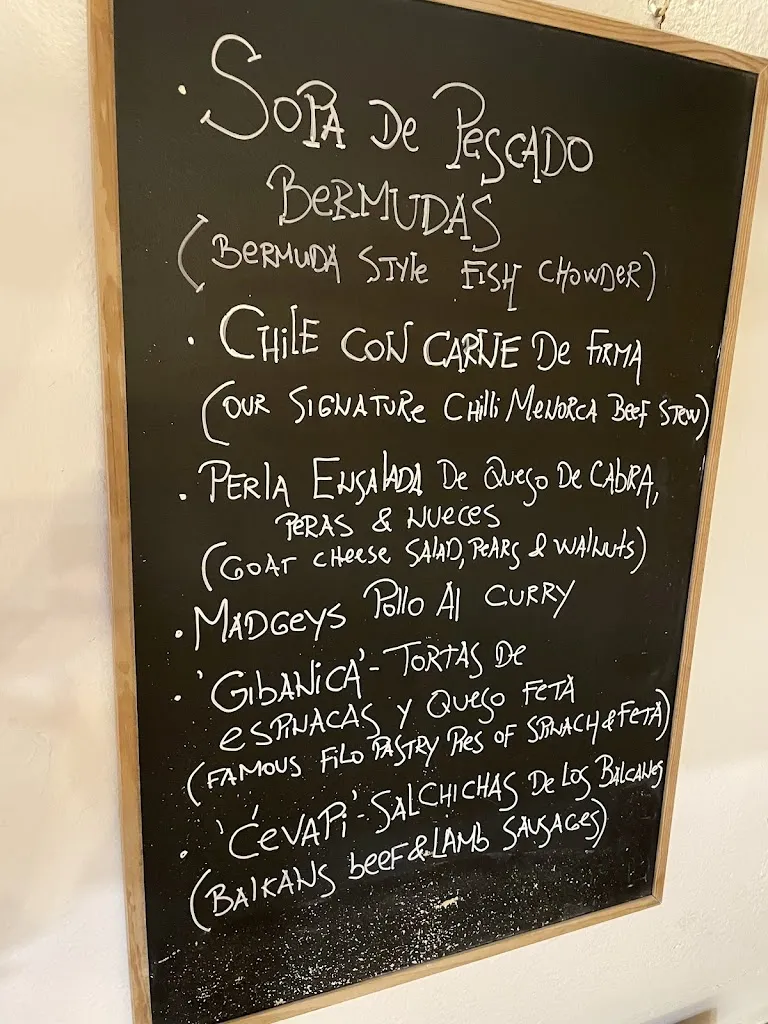 · Sopa De Pescado
Bermudas
(Bermuda Style Fish Chowder)
· Chile con Carne De Firma
(Our Signature Chilli Menorca Beef Stew)
· Perla Ensalada De Queso De Cabra,
Peras & Nueces
(Goat Cheese Salad, Pears & Walnuts)
· Madgeys Pollo Al Curry
· 'Gibanica' - Tortas De
Espinacas y Queso Feta
(Famous Filo Pastry Pies of Spinach & Feta)
· 'Ćevapi' - Salchichas De Los Balcanes
(Balkans Beef & Lamb Sausages)